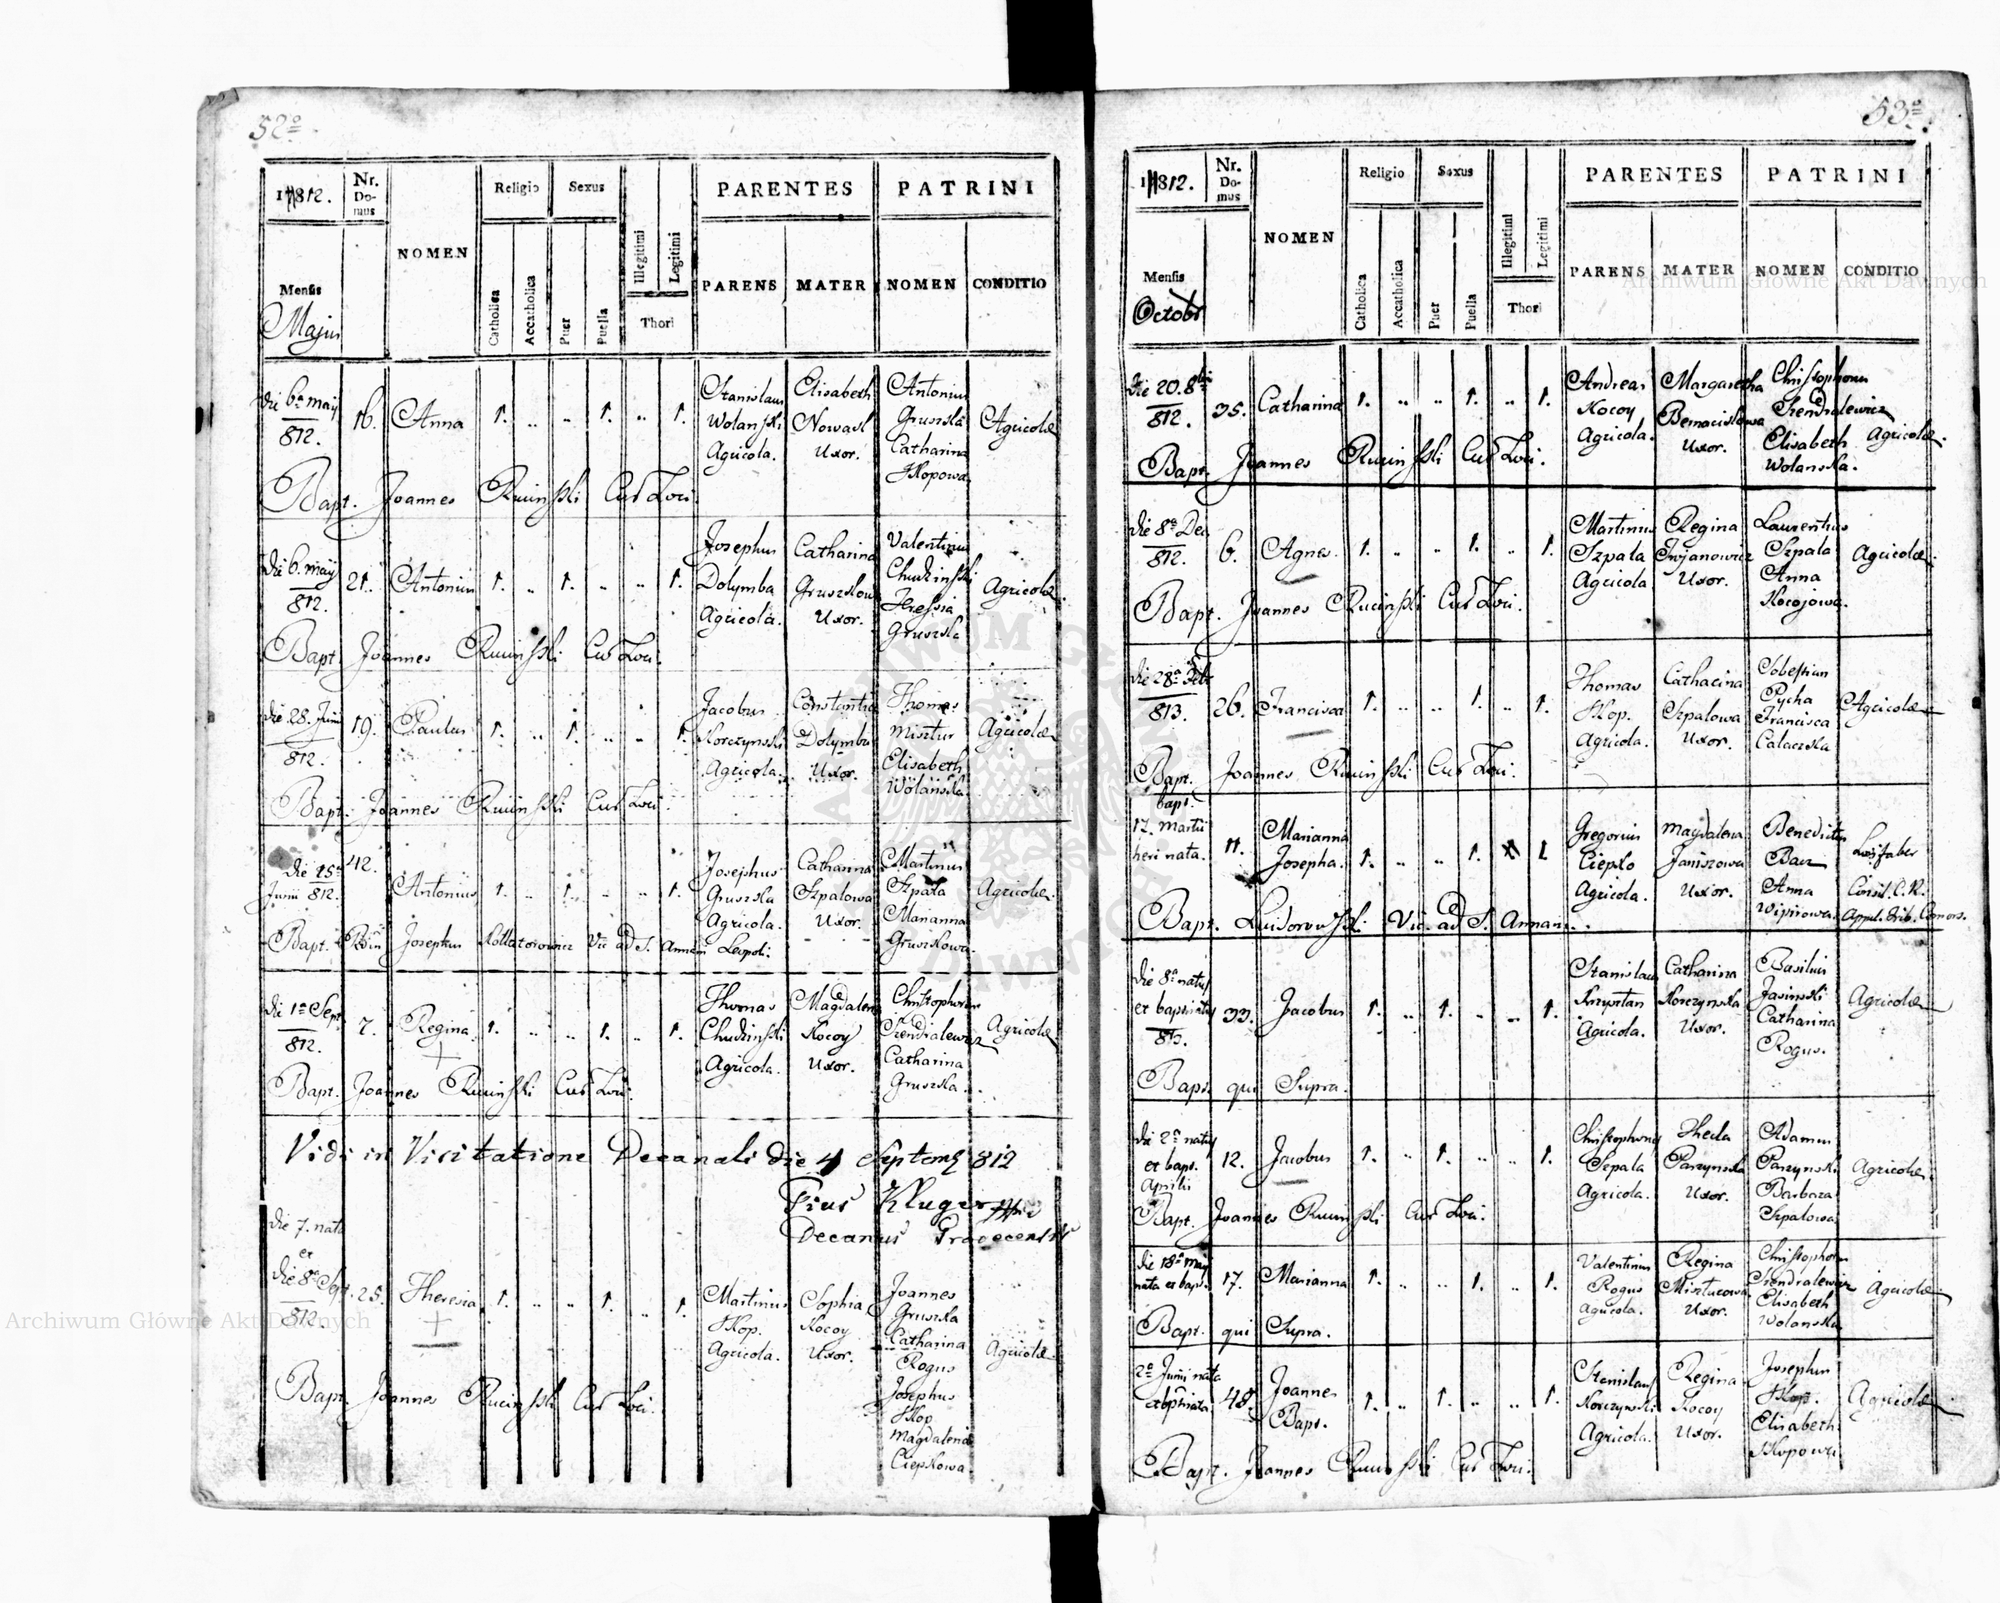 52º
1812.
Nr. Domus
NOMEN
Religio
Sexus
Illegitimi
Legitimi
PARENTES
PATRINI
Mensis
Majus
Catholica
Accatholica
Puer
Puella
Thori
PARENS
MATER
NOMEN
CONDITIO
die 6ª may 812. 16. Anna 1. .. .. 1. .. 1.
Stanislaus Wolański Agricola.
Elisabeth Nowad Uxor.
Antonius Gruszka Catharina Skopowa
Agricolæ
Bapt. Joannes Ruciński Cur Loci.
die 6. may 812. 21. Antonius 1. .. 1. .. .. 1.
Josephus Dolymba Agricola.
Catharina Gruszkow Uxor.
Valentinus Chudziński Teressia Gruszka
Agricolæ
Bapt. Joannes Ruciński Cur Loci.
die 28. Junii 812. 19. Paulus 1. .. 1. .. .. 1.
Jacobus Korczynski Agricola.
Constantia Dolymba Uxor.
Thomas Misztur Elisabeth Wolańska
Agricolæ
Bapt. Joannes Ruciński Cur Loci.
die 15ª Junii 812. 42. Antonius 1. .. 1. .. .. 1.
Josephus Gruszka Agricola.
Catharina Szpalowa Uxor.
Martinus Szpala Marianna Gruszkowa.
Agricolæ
Bapt. Josephus Vic ad S. Annam Leopoli.
die 1ª Sept 812. 7. Regina 1. .. .. 1. .. 1.
Thomas Chudziński Agricola.
Magdalena Kocoy Uxor.
Christophorus Trendralewicz Catharina Gruszka.
Agricolæ
Bapt. Joannes Ruciński Cur Loci.
Vidi in Visitatione Decanali die 4 Septemb 812
Pius Kluger
Decanus Grodecensis
die 7. nata et die 8ª Sept. 812. 25. Theresia 1. .. .. 1. .. 1.
Martinus Skop. Agricola.
Sophia Kocoy Uxor.
Joannes Gruszka Catharina Rogus Josephus Skop Magdalena Ciepkowa.
Agricolæ
Bapt. Joannes Ruciński Cur Loci.
53º
1812.
Nr. Domus
NOMEN
Religio
Sexus
Illegitimi
Legitimi
PARENTES
PATRINI
Mensis
Octobr
Catholica
Accatholica
Puer
Puella
Thori
PARENS
MATER
NOMEN
CONDITIO
die 20. 8bri 812. 35. Catharina 1. .. .. 1. .. 1.
Andreas Kocoy Agricola.
Margaretha Uxor.
Christophorus Trendralewicz Elisabeth Wolanska.
Agricolæ.
Bapt. Joannes Ruciński Cur Loci.
die 8ª Dec 812. 6. Agnes. 1. .. .. 1. .. 1.
Martinus Szpala Agricola
Regina Trojanowicz Uxor.
Laurentius Szpala Anna Kocojowa.
Agricolæ.
Bapt. Joannes Ruciński Cur Loci.
die 28ª Febr 813. 26. Francisca 1. .. .. 1. .. 1.
Thomas Skop. Agricola.
Catharina Szpalowa Uxor.
Sobestian Pycha Francisca Calaczka
Agricolæ
Bapt. Joannes Ruciński Cur Loci.
bapt. 17. Martii heri nata. 11. Marianna Josepha. 1. .. .. 1. 1
Gregorius Ciepko Agricola.
Magdalena Janiszowa Uxor.
Benedictus Baer Anna
Consil. C. R. Appel. Trib.
Bapt. Vic. ad S. Annam.
die 8ª natus et baptisatus 813. 33. Jacobus 1. .. 1. .. .. 1.
Stanislaus Krysztan Agricola.
Catharina Korczynska Uxor.
Basilius Jasinski Catharina Rogus.
Agricolæ
Bapt. qui Supra.
die 2ª natus et bapt. Aprilis 12. Jacobus 1. .. 1. .. .. 1.
Christophorus Szpala Agricola.
Thecla Parzynska Uxor.
Adamus Parzynski Barbara Szpalowa
Agricolæ.
Bapt. Joannes Ruciński Cur Loci.
die 18ª may nata et bapt. 17. Marianna 1. .. .. 1. .. 1.
Valentinus Rogus Agricola.
Regina Miszturowa Uxor.
Christophorus Trendralewicz Elisabeth Wolanska
Agricolæ
Bapt. qui Supra.
2ª Junii 48. Joannes Bapt. 1. .. 1. .. .. 1.
Stanislaus Korczynski Agricola.
Regina Kocoy Uxor.
Josephus Skop. Elisabeth Skopowa
Agricolæ
Bapt. Joannes Ruciński Cur Loci.
Archiwum Główne Akt Dawnych
Archiwum Główne Akt Dawnych